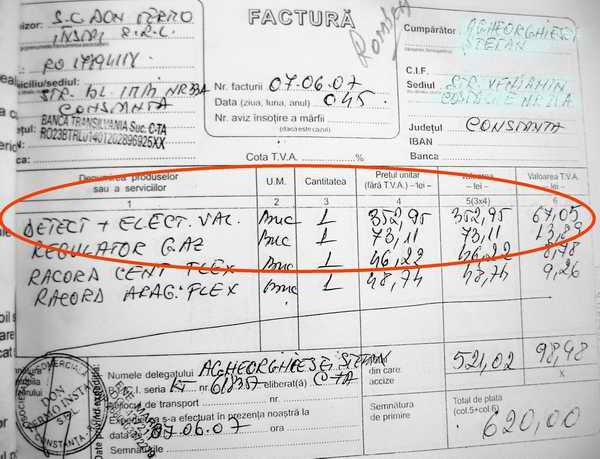 FACTURĂ
S.C. DON TERMO
INSTAL S.R.L.
Cumpărător: AGHEORGHIESEI
STEFAN
C.I.F.
Sediul STR. VENIAMIN
Nr. facturii 07.06.07
Data (ziua, luna, anul) 045
Nr. aviz însoţire a mărfii
(dacă este cazul)
CONSTANTA
BANCA TRANSILVANIA Suc. C-TA
RO23BTRLU1401202896925XX
Judeţul CONSTANTA
IBAN
Banca
Cota T.V.A. ........%
Denumirea produselor sau a serviciilor U.M. Cantitatea Preţul unitar (fără T.V.A.) – lei – Valoarea – lei – Valoarea T.V.A. – lei –
1 2 3 4 5(3x4) 6
DETECT + ELECT. VAL. Buc 1 352,95 352,95 67,05
REGULATOR GAZ Buc 1 73,11 73,11 13,89
RACORD CENT FLEX Buc 1 46,22 46,22 8,78
RACORD ARAG. FLEX Buc 1 48,74 48,74 9,26
Numele delegatului AGHEORGHIESEI STEFAN
din care accize
521,02 98,48
X
B.C.I. seria KT nr. eliberat(ă) CTA
de transport nr.
Expedierea s-a efectuat în prezenţa noastră la
data 07.06.07
Semnăturile
Semnătura de primire
Total de plată (col.5+col.6)
620,00